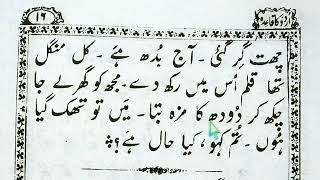 اردو کا قاعدہ ۱۶
چھت گر گئی - آج بدھ ہئے - کل منگل
تھا قلم اُس میں رکھ دے - مجھ کو گھر لے جا
چکھ کر دُودھ کا مزہ بتا - میَں تو تھک گیا
ہوں - تُم کہو ، کیا حال ہئے ؟